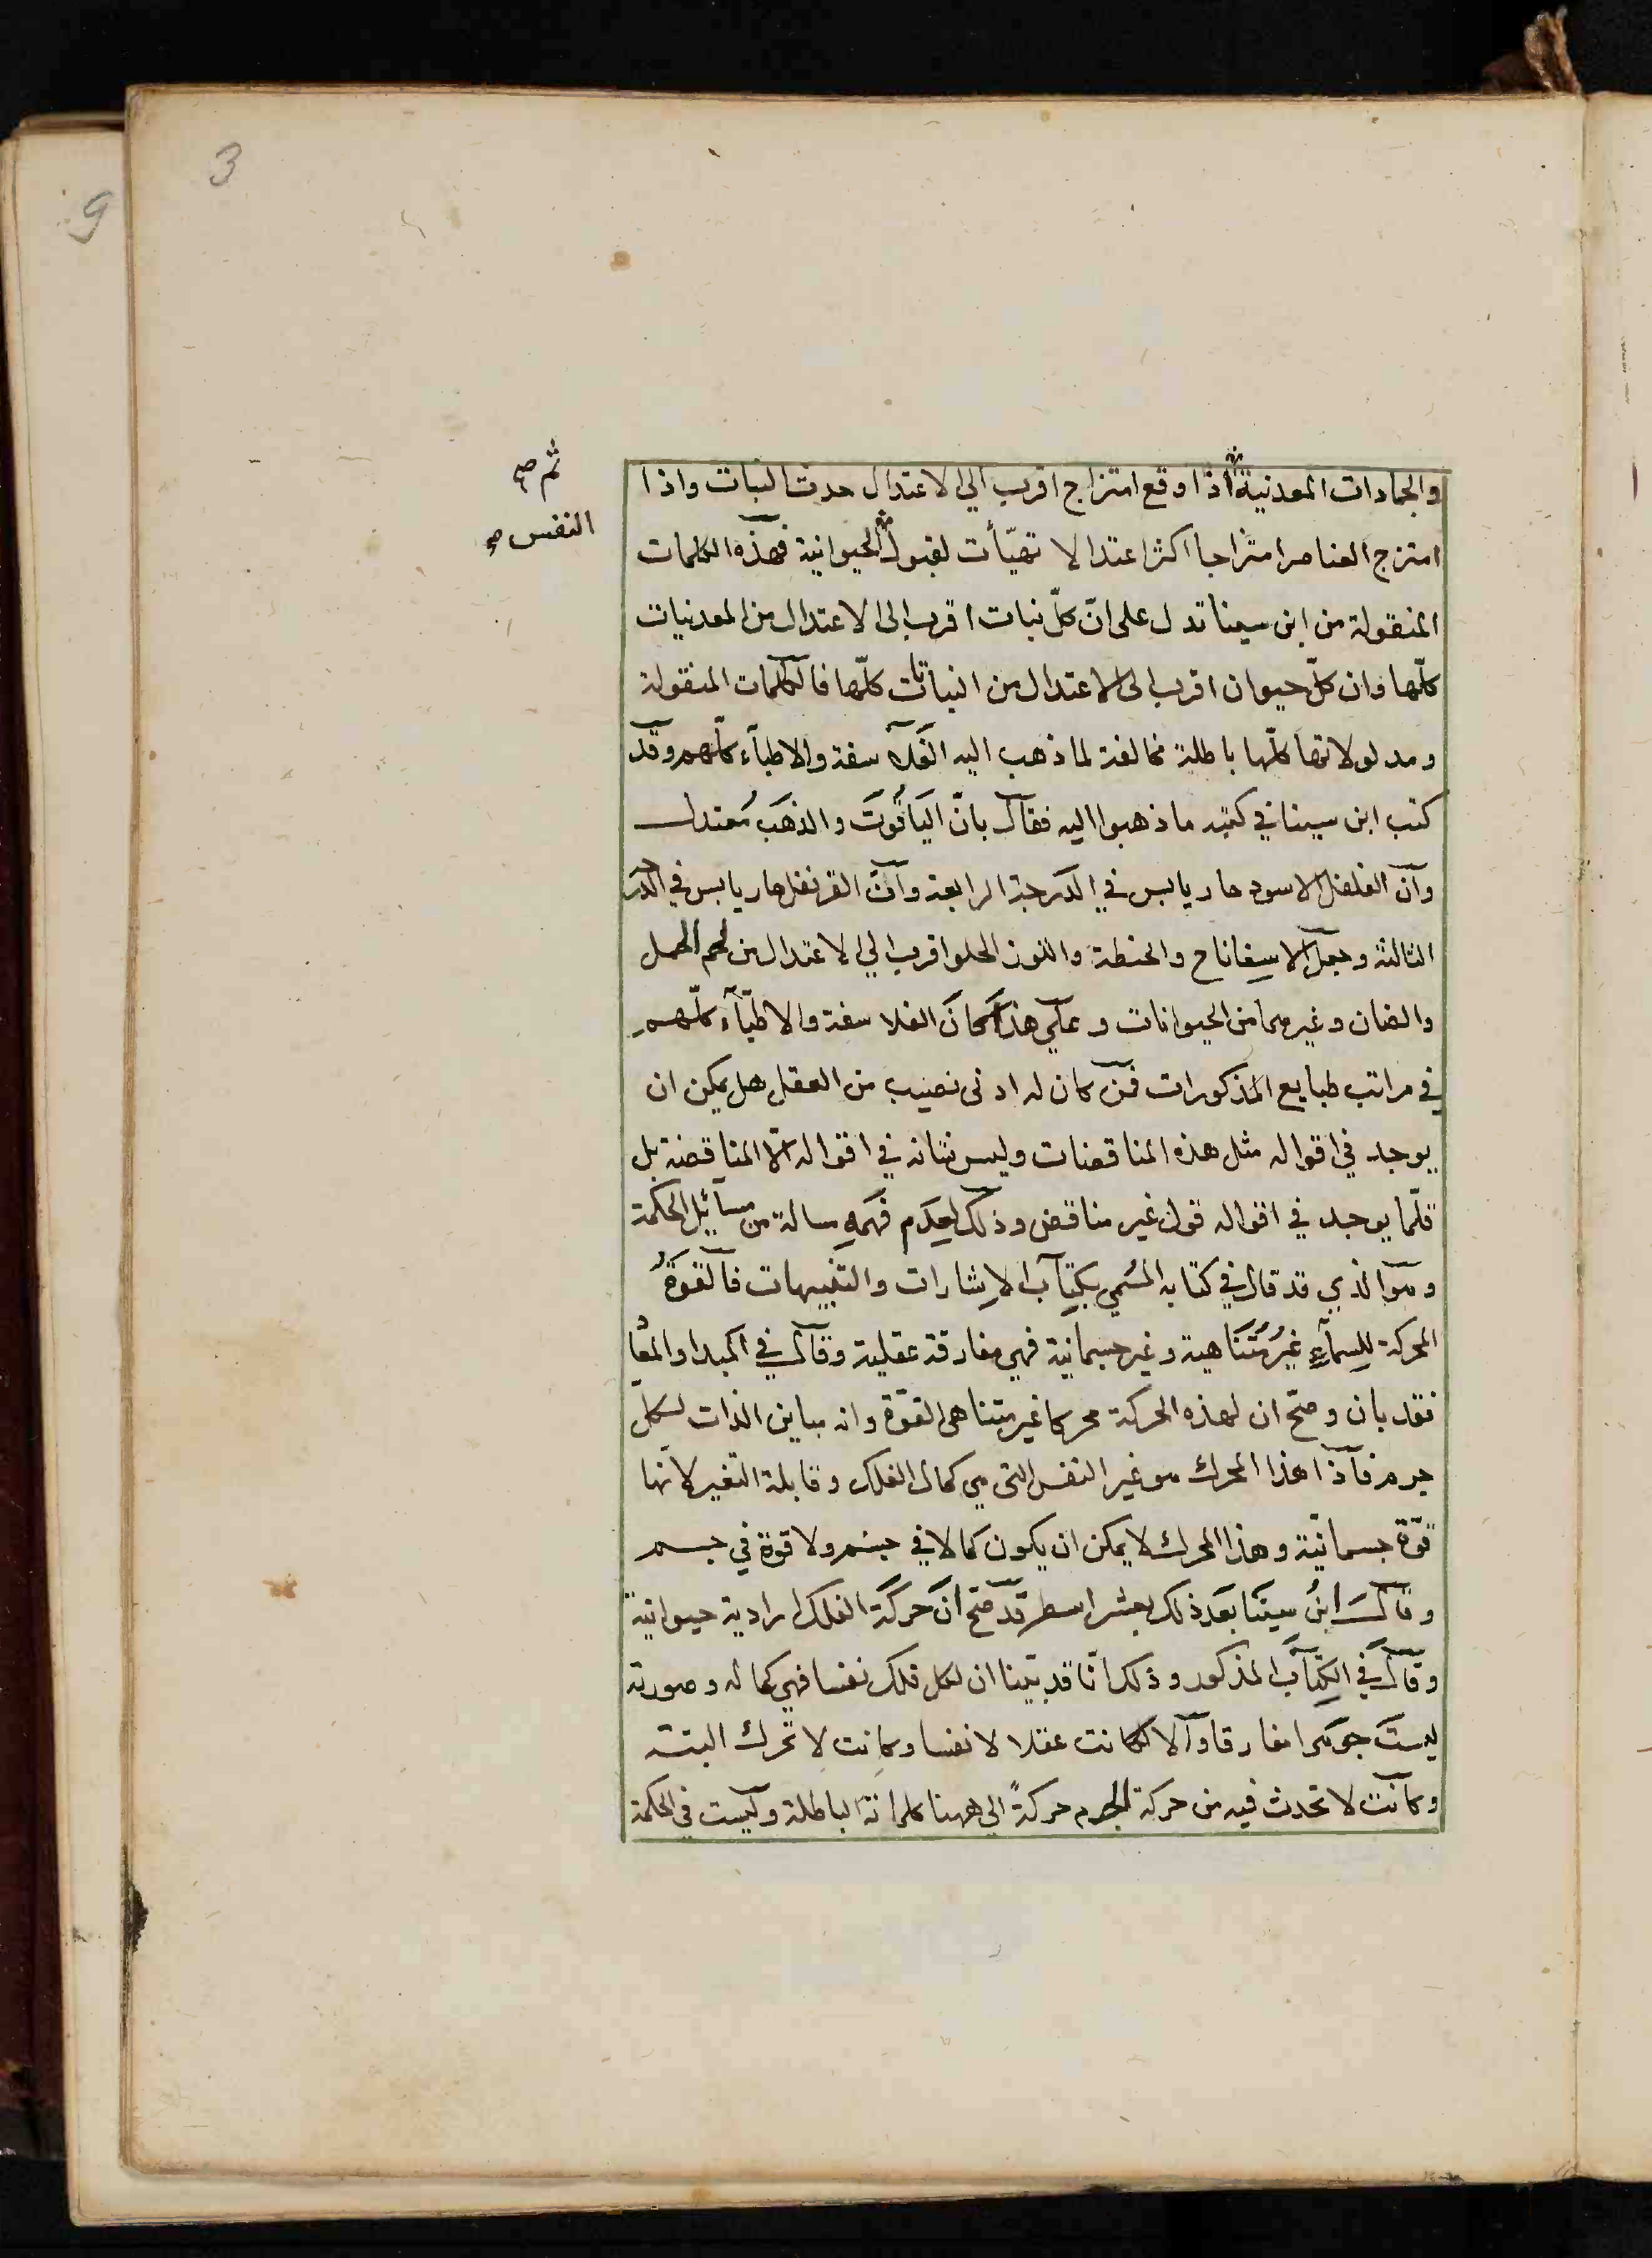 3
9
ثم صح
النفس صح
والجمادات المعدنية اذا وقع امتزاج اقرب الى الاعتدال حدث النبات واذا
امتزج العناصر امتزاجا اكثر اعتدالا تهيّأت لقبول الحيوانية فهذه الكلمات
المنقولة من ابن سينا تدل على انّ كلّ نبات اقرب الى الاعتدال من المعدنيات
كلّها وان كلّ حيوان اقرب الى الاعتدال من النباتات كلّها فالكلمات المنقولة
ومدلولاتها كلّها باطلة مخالفة لما ذهب اليه الفلاسفة والاطبآء كلّهم وقد
كتب ابن سينا في كتبه ما ذهبوا اليه فقال بانّ اليَاقُوتَ والذهَب مُعتدل
وآن الفلفل الاسود حار يابس في الدرجة الرابعة وآنّ القرنفل حار يابس في الدرجة
الثالثة وجعل الاسفاناخ والحنطة واللوز الحلو اقرب الي الاعتدال من لحم الحمل
والضان وغيرهما من الحيوانات وعلي هذا كانَ الفلاسفة والاطبّآء كلّهم
في مراتب طبايع المذكورات فمن كان له ادنى نصيب من العقل هل يمكن ان
يوجد في اقواله مثل هذه المناقضات وليس شانه في اقواله الّا المناقضة بل
قلّما يوجد في اقواله قول غير مناقض وذلك لعِدَم فَهمِه مسالة من مسآئل الحكمة
وهو الذي قد قال في كتابه المسُمي بكتاب الاِشارات والتنبيهات فالقوةُ
المحركة للسمآءِ غيُر مُتَنَاهية وغير جسمانية فهي مفارقة عقلية وقال في المبدا والمعا
فقد بان وصحّ ان لهذه الحركة محركا غير متناهى القوّة وانه مباين الذات لكلّ
جرم فآذا هذا المحرك هو غير النفس التى هي كمال الفلك وقابلة التغير لانّها
قوّة جسمانيّة وهذا المحرك لا يمكن ان يكون كمالا في جسم ولا قوة في جسم
وقالَ ابنُ سينَا بعَد ذلك بعشر اسطر قد صحّ انَّ حركَة الفلك ارادية حيوانية
وقال في الكتاب المذكور وذلك انّا قد بيّنا ان لكل فلك نفسا فهي كماله وصورته
ليست جوهرا مفارقا والّا لكانت عقلا لا نفسا وكانت لا تحرك البتة
وكانت لا تحدث فيه من حركة الجرم حركةً الي ههنا كلماته الباطلة وليست في الحكمة